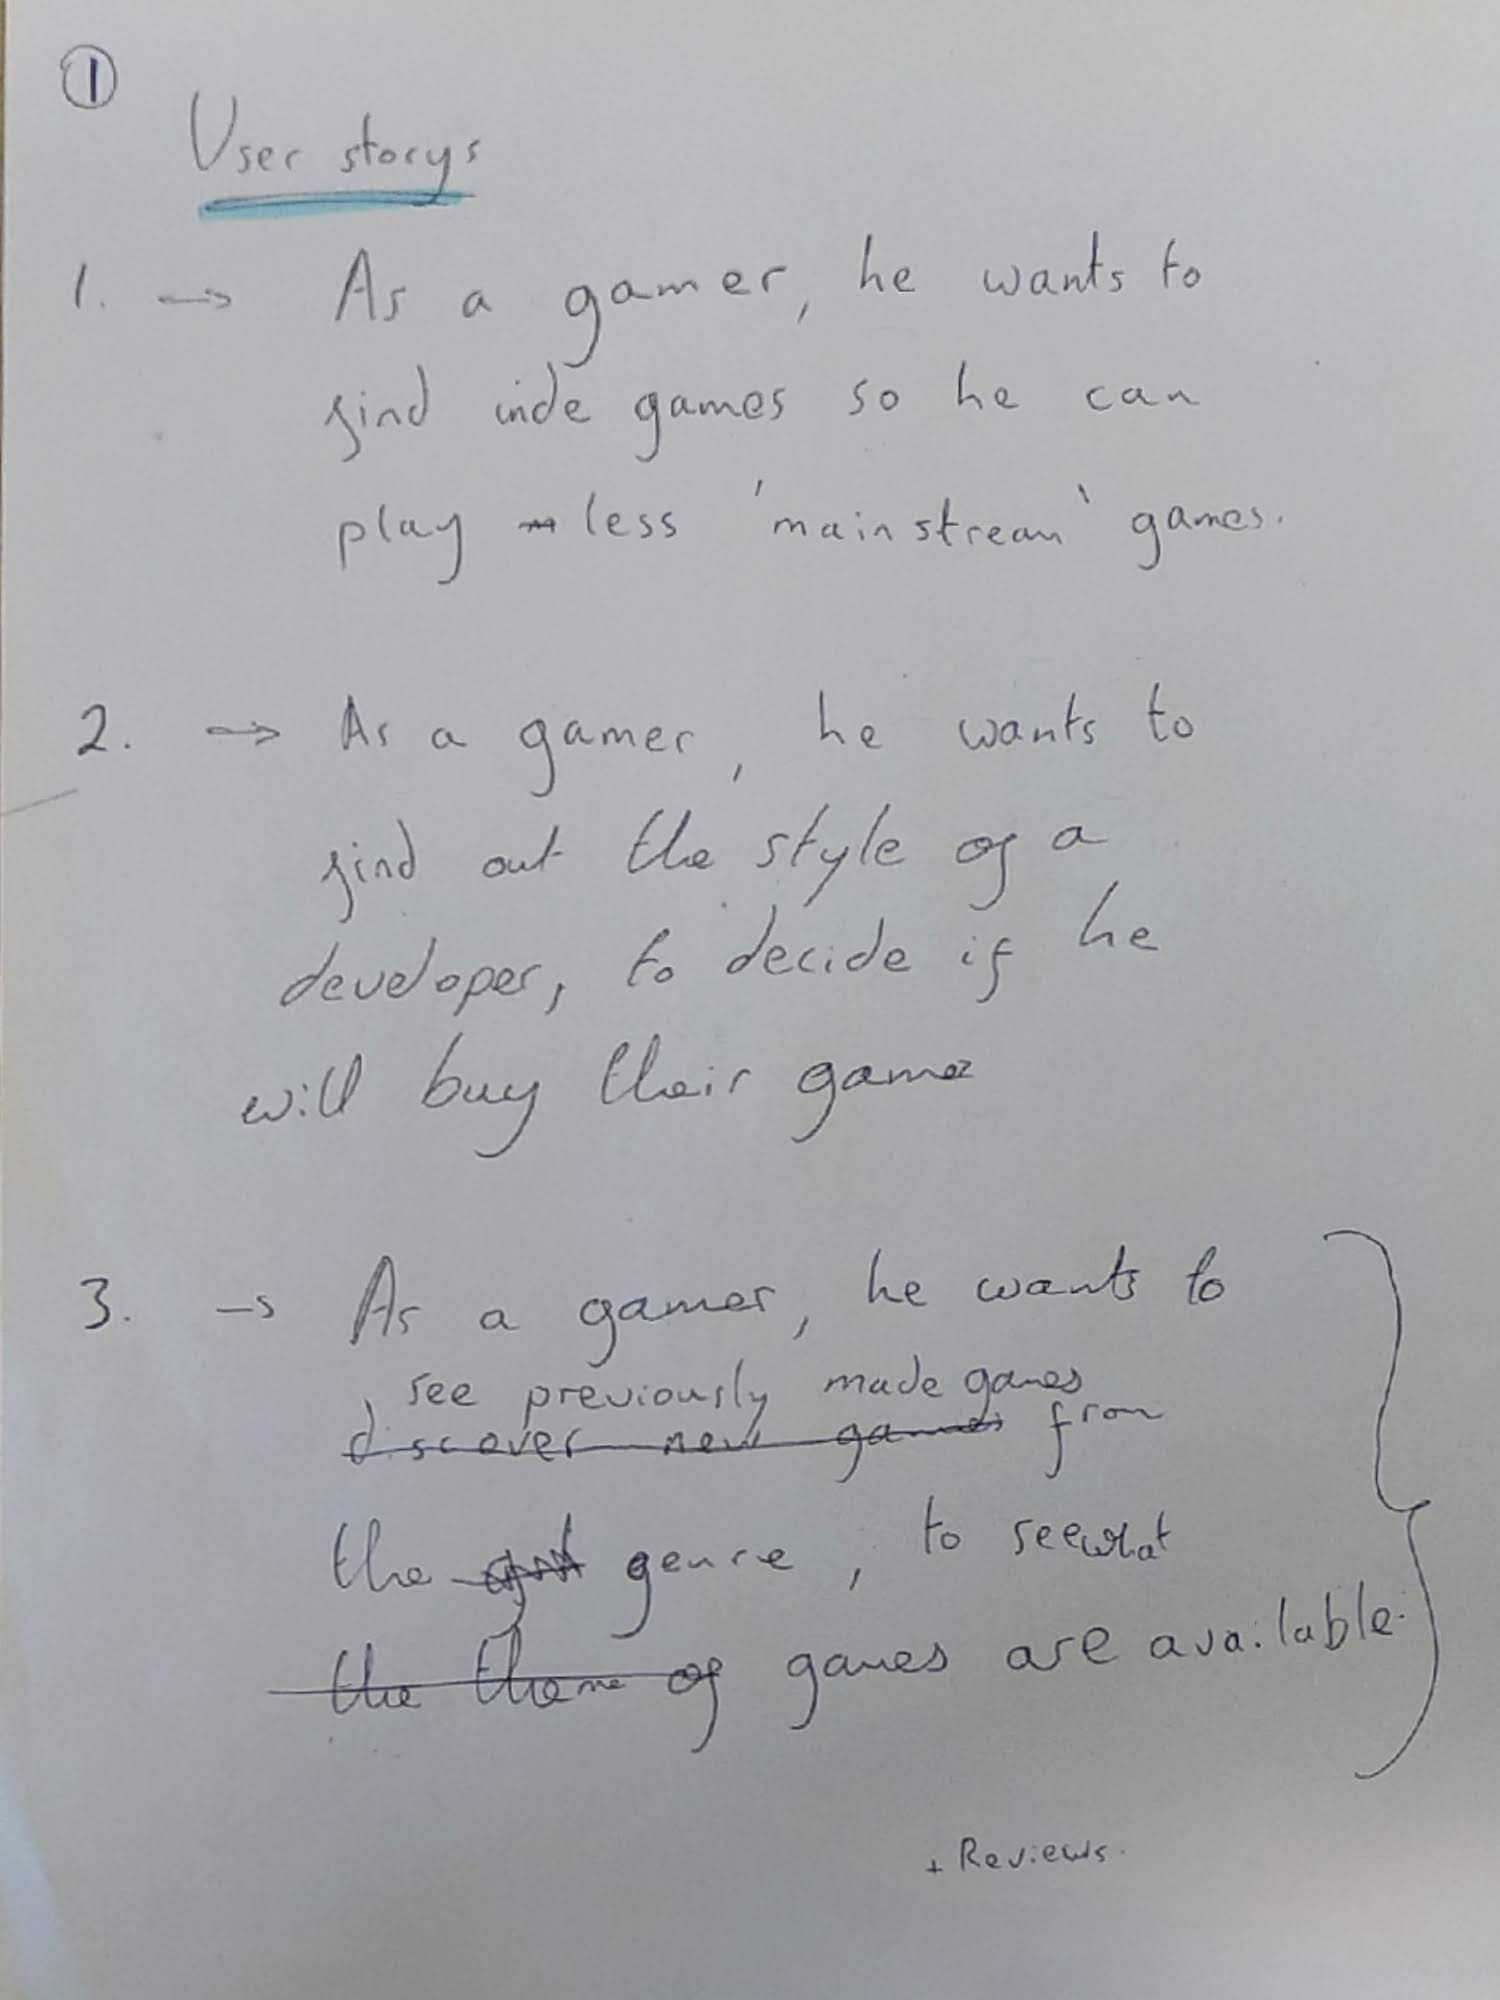 ①
User storys
1. → As a gamer, he wants to
find inde games so he can
play less 'mainstream' games.
2. → As a gamer, he wants to
find out the style of a
developer, to decide if he
will buy their game
3. → As a gamer, he wants to
see previously made games
discover new games from
the genre, to see what
the theme of games are available.
+ Reviews.